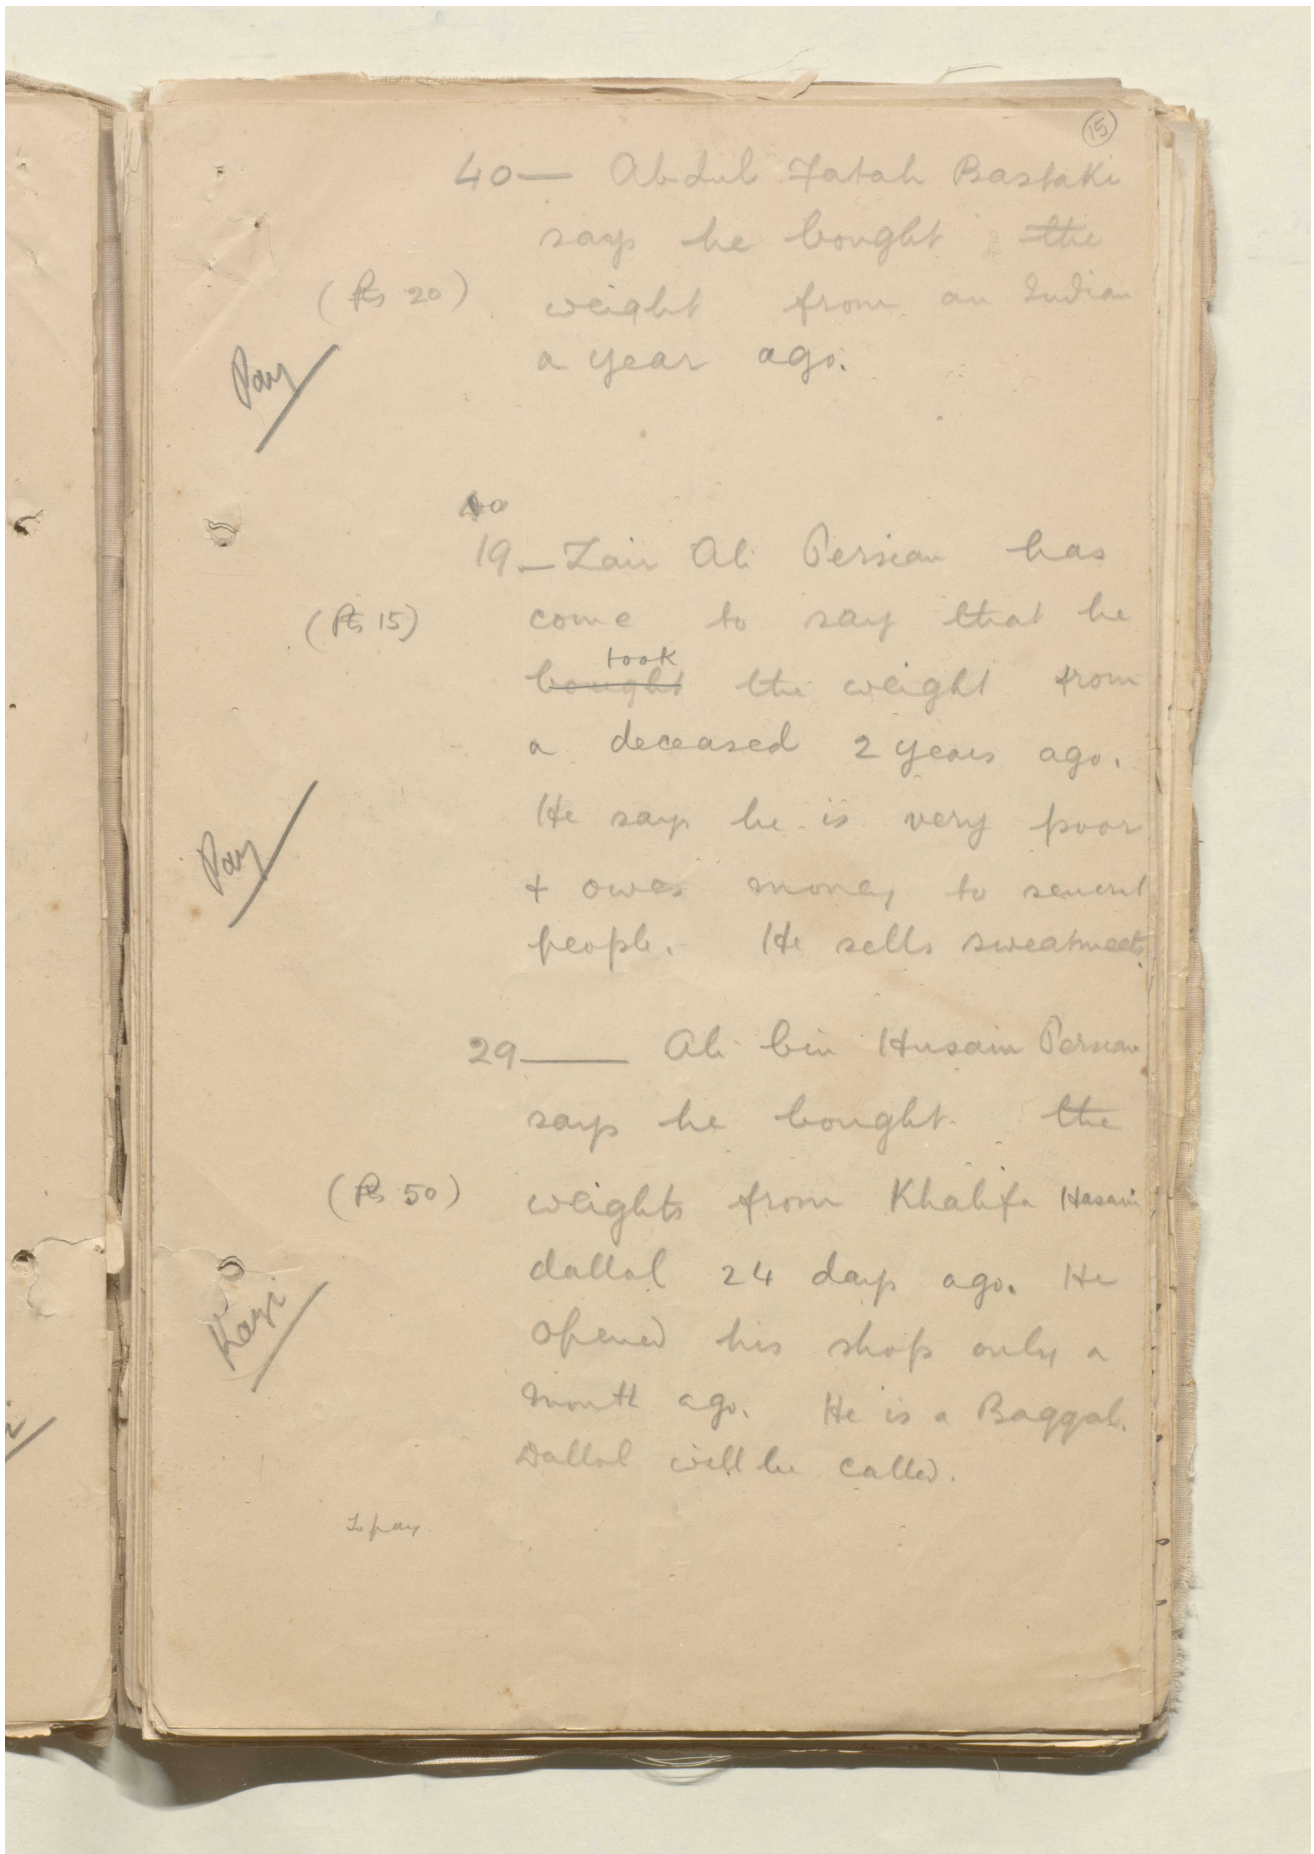 15
40— Abdul Fatah Bastaki
says he bought the
(Rs 20) weight from an Indian
a year ago.
Pay
No
19— Zair Ali Persian has
(Rs 15) come to say that he
took
bought the weight from
a deceased 2 years ago.
He says he is very poor
Pay
+ owes money to several
people. He sells sweatmeets
29— Ali bin Husain Persian
says he bought the
(Rs 50) weights from Khalifa
dallal 24 days ago. He
Kazi
opened his shop only a
month ago. He is a Baqqal.
Dallal will be called.
To pay